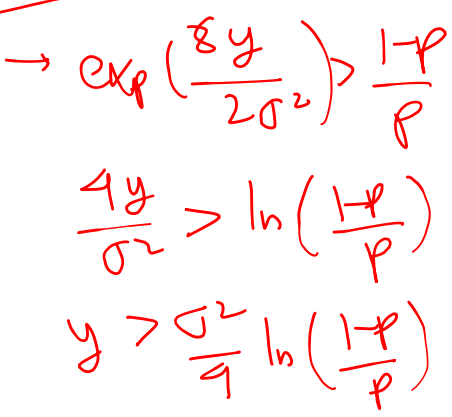 → exp(8y/2σ²) > (1-p)/p
4y/σ² > ln((1-p)/p)
y > σ²/4 ln((1-p)/p)